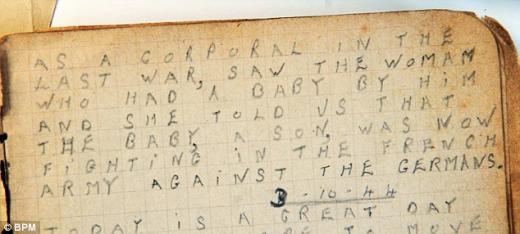 AS A CORPORAL IN THE
LAST WAR, SAW THE WOMAN
WHO HAD A BABY BY HIM
AND SHE TOLD US THAT
THE BABY, A SON, WAS NOW
FIGHTING IN THE FRENCH
ARMY AGAINST THE GERMANS.
3-10-44
TODAY IS A GREAT DAY
TO MOVE
© BPM